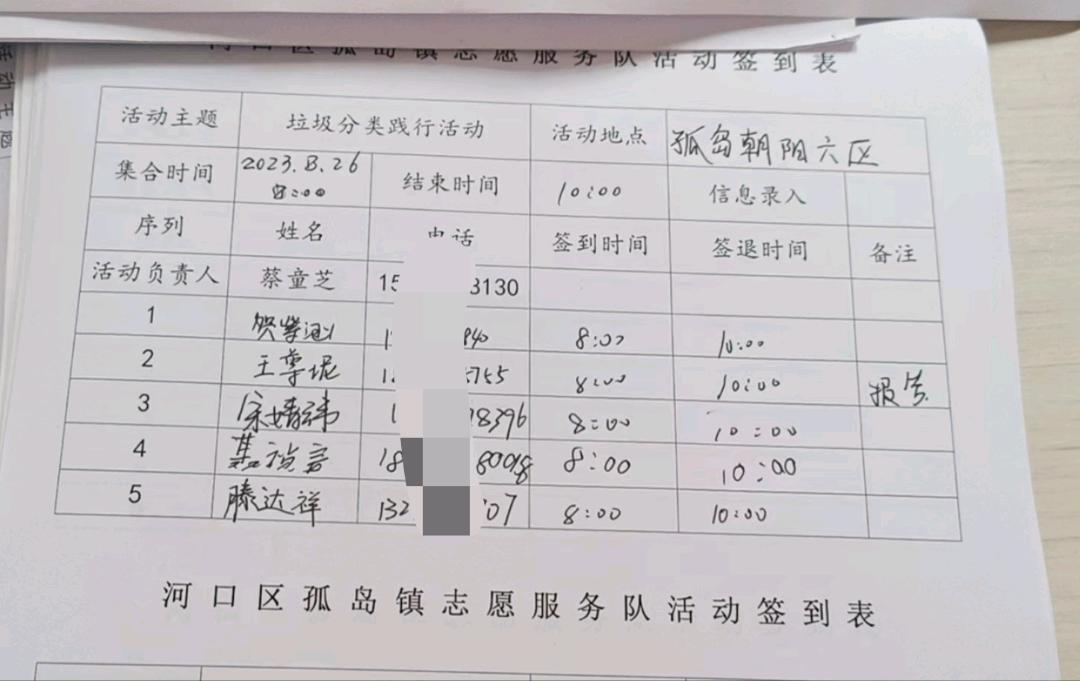 河口区孤岛镇志愿服务队活动签到表
活动主题 垃圾分类践行活动 活动地点 孤岛朝阳六区
集合时间 2023.8.26 8:00 结束时间 10:00 信息录入
序列 姓名 电话 签到时间 签退时间 备注
活动负责人 蔡童芝 15 3130
1 贺紫涵 1 940 8:00 10:00
2 王尊琨 1 5755 8:00 10:00 报告
3 宋婧祎 1 18396 8:00 10:00
4 18 80098 8:00 10:00
5 滕达祥 132 07 8:00 10:00
河口区孤岛镇志愿服务队活动签到表